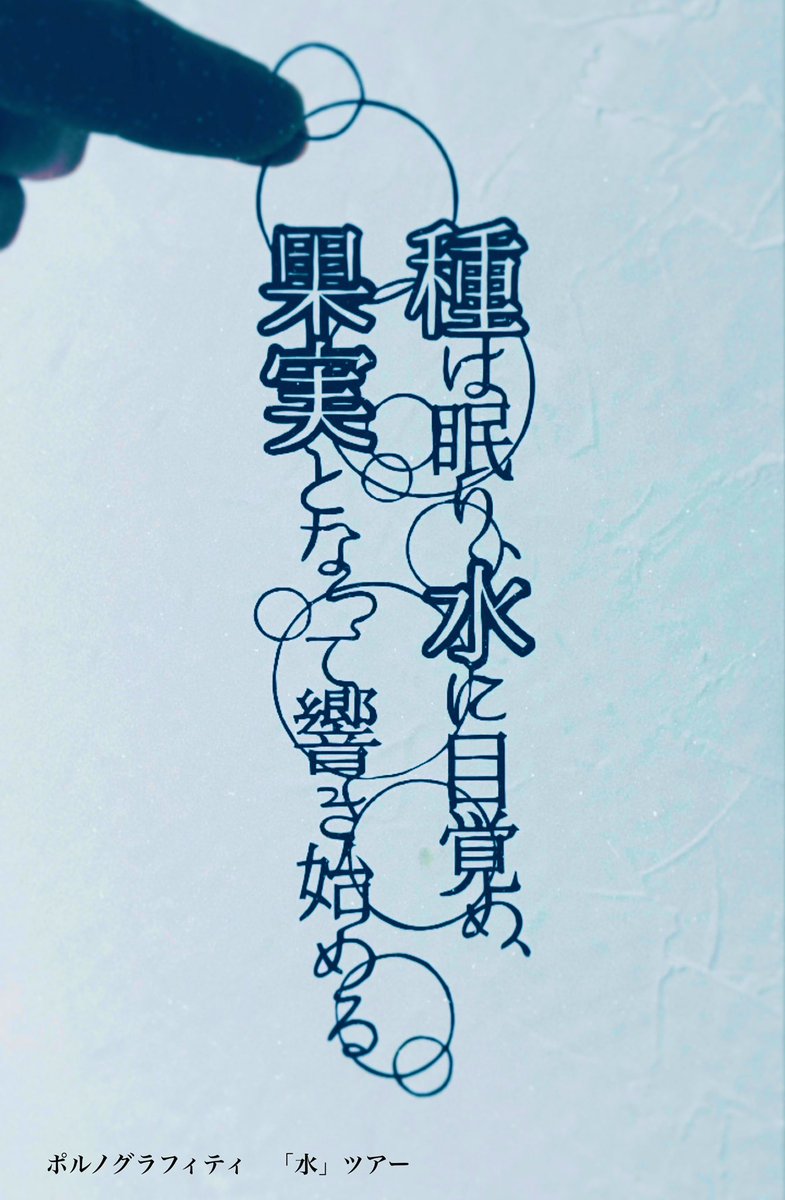 種は眠り、水に目覚め、
果実となって響き始める
ポルノグラフィティ 「水」ツアー